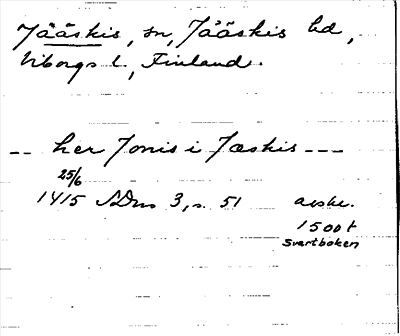 Jääskis, sn, Jääskis hd,
Viborgs l., Finland.
-- her Jonis i Jæskis ---
25/6
1415 SDns 3, s. 51 avskr.
1500 t
Svartboken